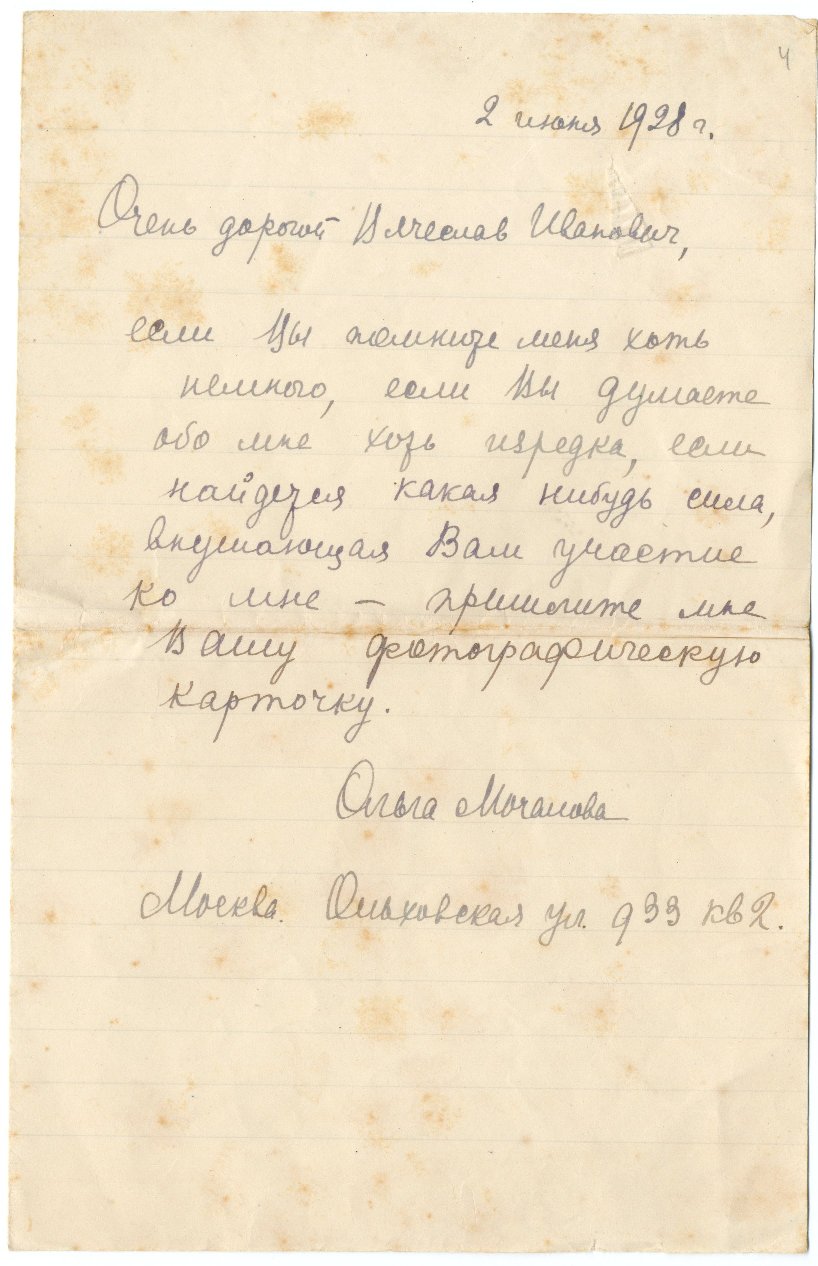 4
2 июня 1928 г.
Очень дорогой Вячеслав Иванович,
если Вы помните меня хоть
немного, если Вы думаете
обо мне хоть изредка, если
найдется какая нибудь сила,
внушающая Вам участие
ко мне — пришлите мне
Вашу фотографическую
карточку.
Ольга Мочалова
Москва. Ольховская ул. д 33 кв 2.